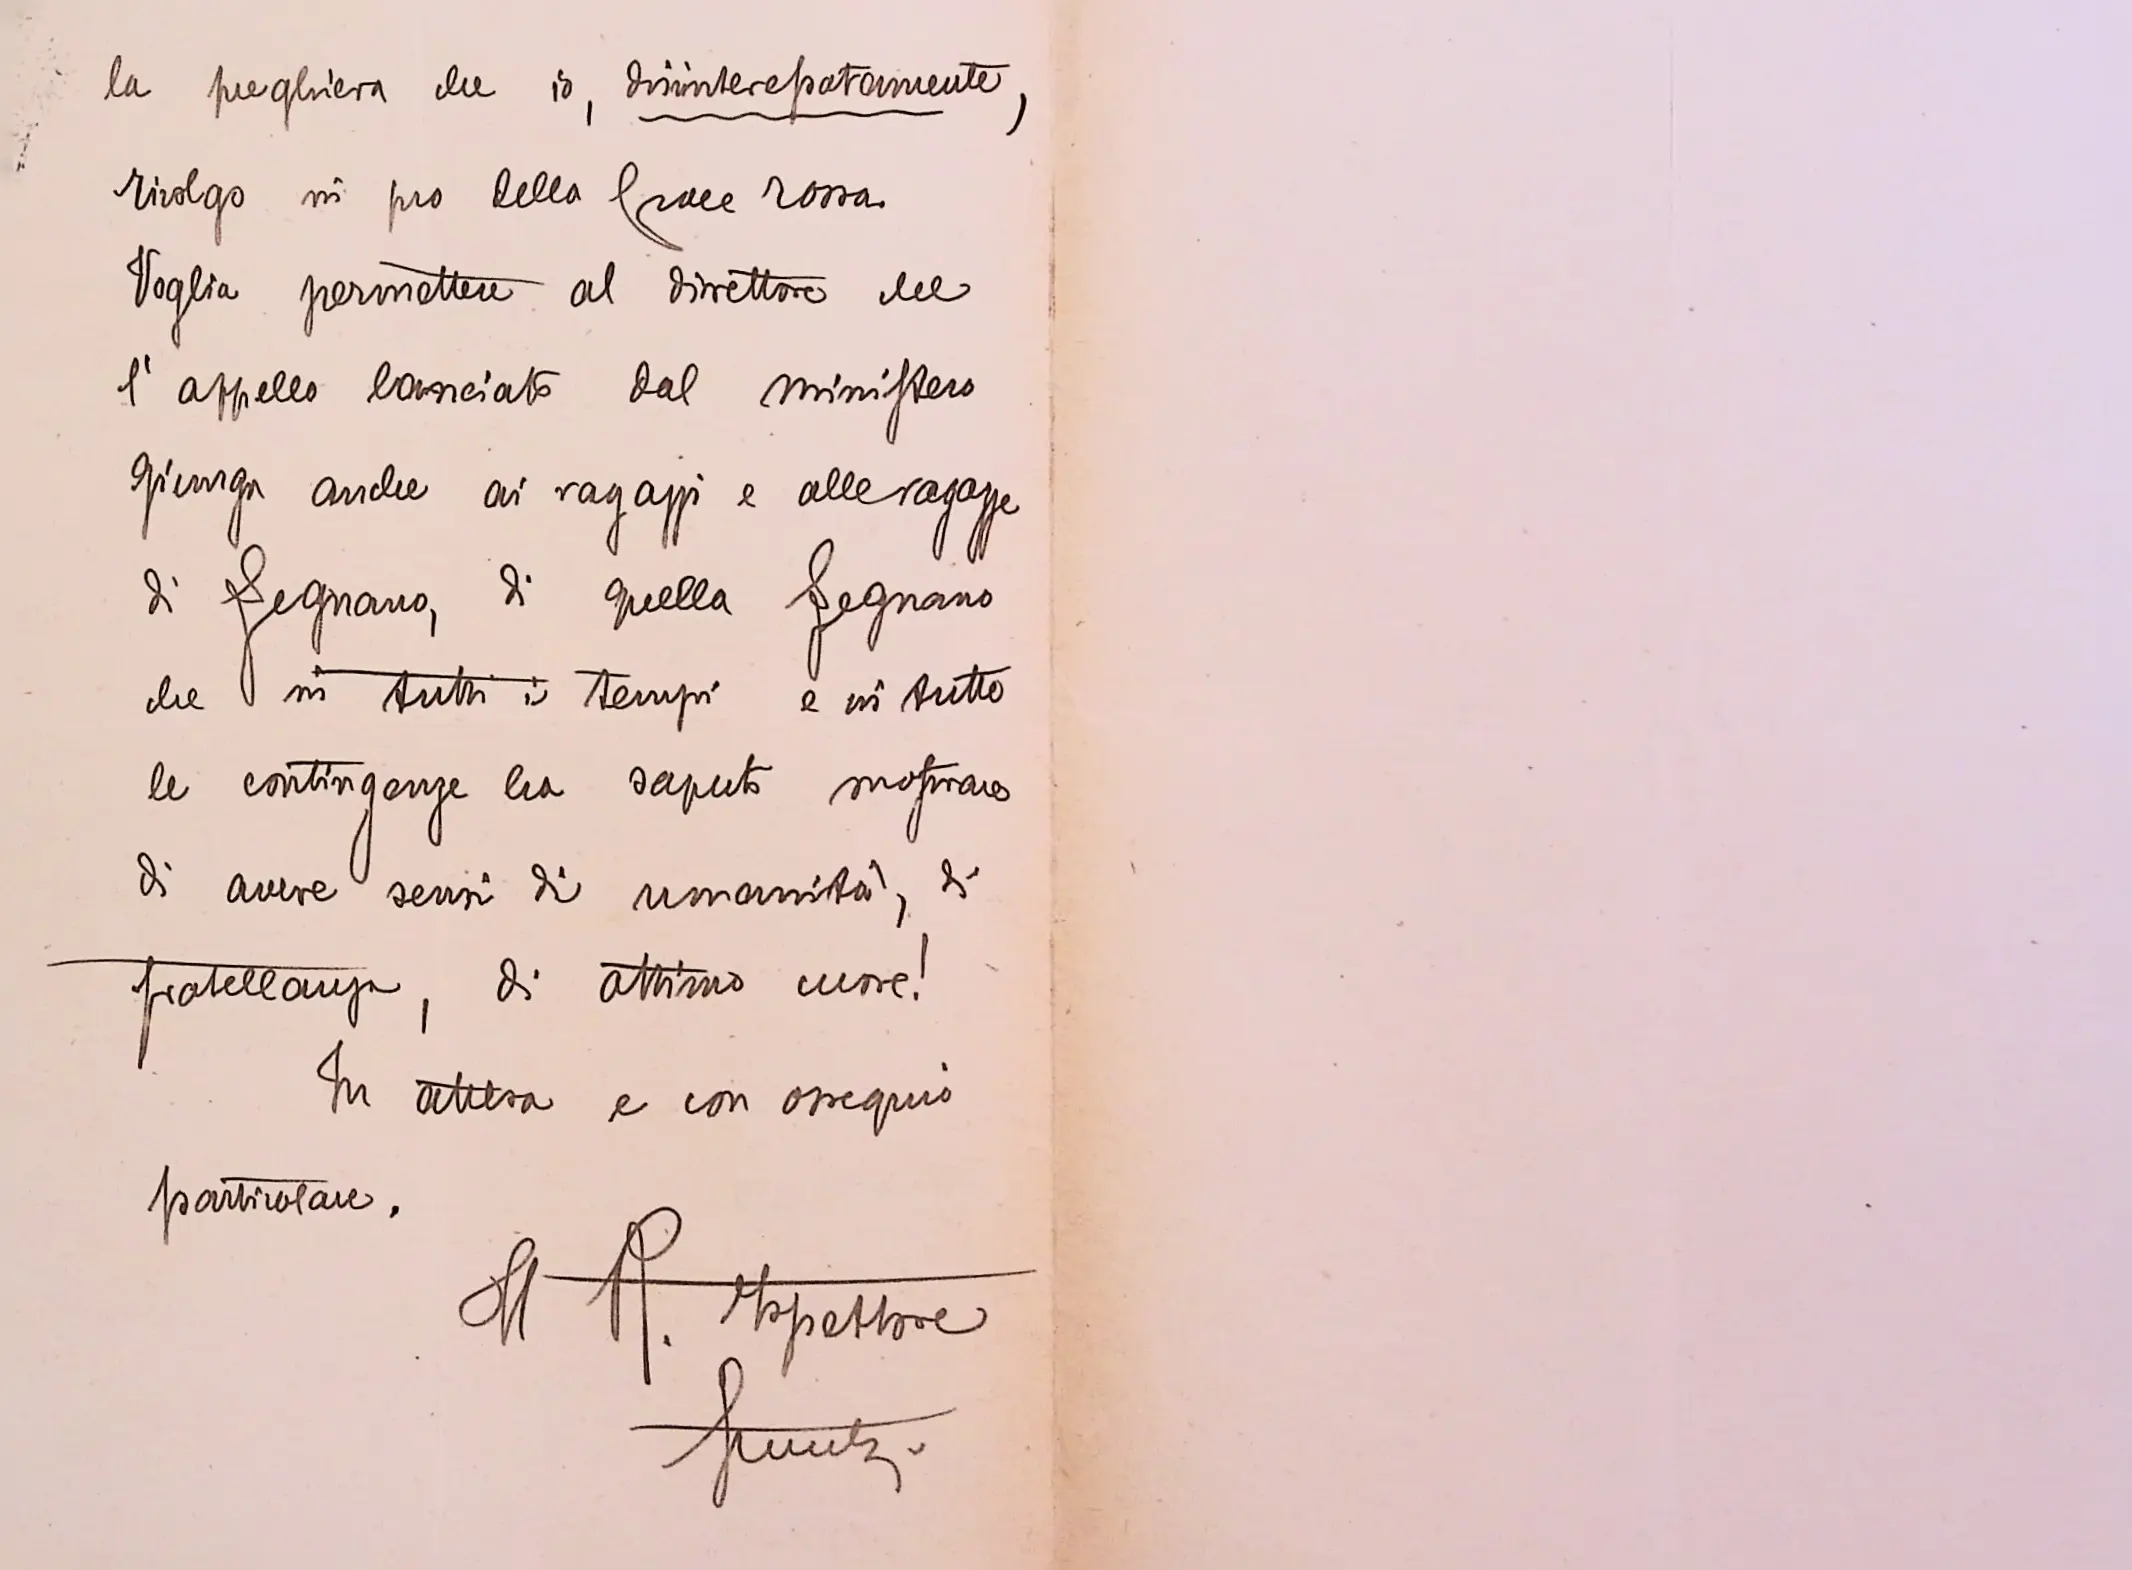 la preghiera che io, disinteressatamente,
rivolgo in pro della Croce rossa.
Voglia permettere al direttore che
l'appello lanciato dal ministero
giunga anche ai ragazzi e alle ragazze
di Legnano, di quella Legnano
che in tutti i tempi e in tutte
le contingenze ha saputo mostrare
di avere sensi di umanità, di
fratellanza, di ottimo cuore!
In attesa e con ossequio
particolare.
Il R. Ispettore